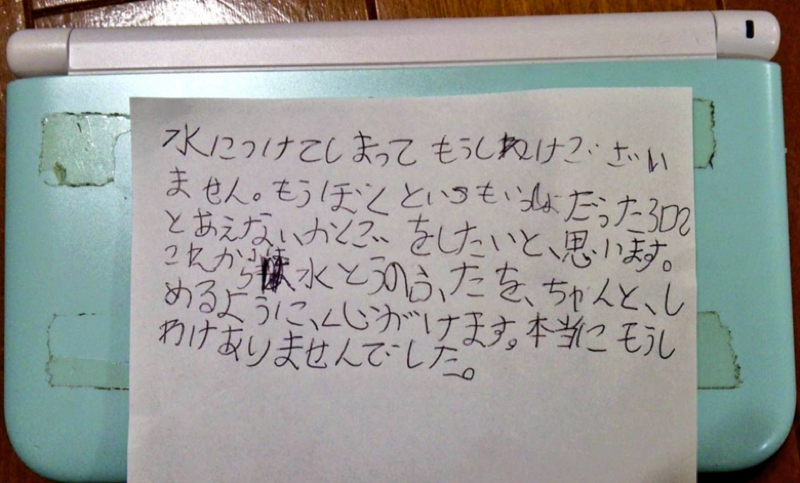 水につけてしまって もうしわけござい
ません。もうぼくといつもいっしょだった3DS
とあえないかくごをしたいと、思います。
これからは、水とうのふたを、ちゃんと、し
めるように、心がけます。本当にもうし
わけありませんでした。